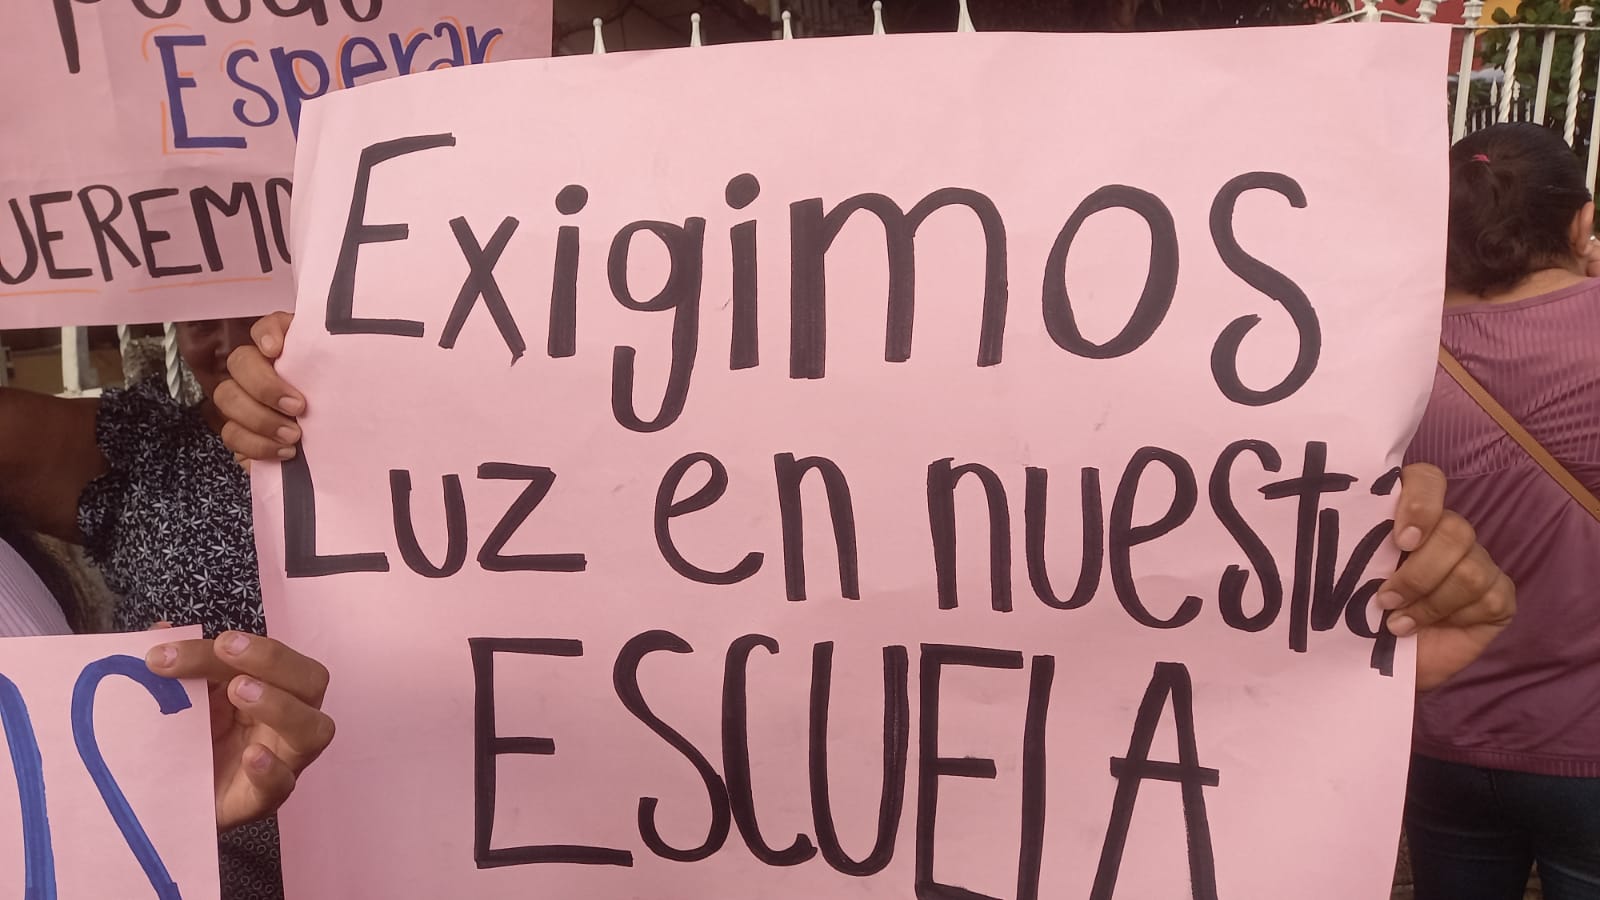 Esperar
Exigimos
Luz en nuestra
ESCUELA